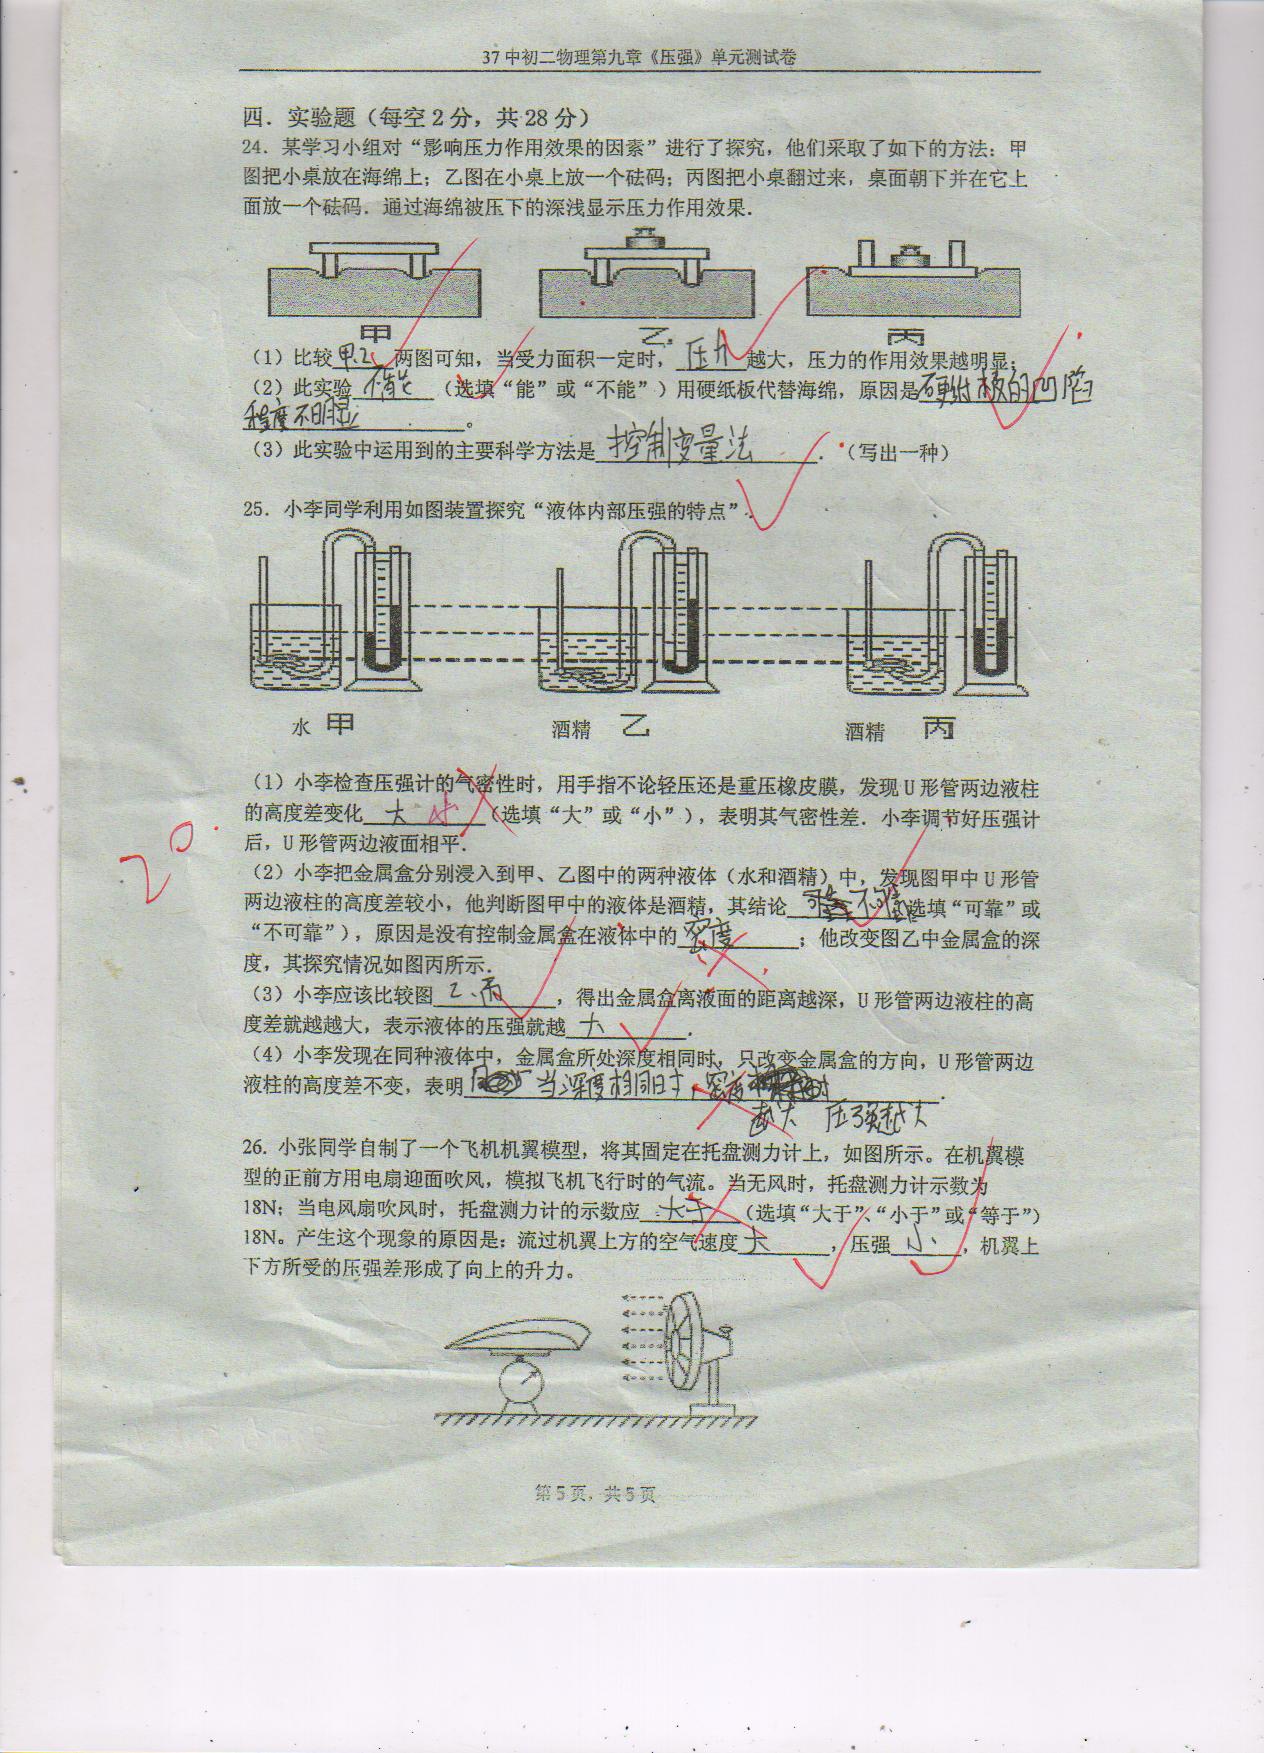 37中初二物理第九章《压强》单元测试卷
四．实验题（每空2分，共28分）
24．某学习小组对“影响压力作用效果的因素”进行了探究，他们采取了如下的方法：甲
图把小桌放在海绵上；乙图在小桌上放一个砝码；丙图把小桌翻过来，桌面朝下并在它上
面放一个砝码．通过海绵被压下的深浅显示压力作用效果．
甲 乙 丙
（1）比较甲乙两图可知，当受力面积一定时，压力越大，压力的作用效果越明显；
（2）此实验不能（选填“能”或“不能”）用硬纸板代替海绵，原因是硬纸板的凹陷
程度不明显。
（3）此实验中运用到的主要科学方法是控制变量法．（写出一种）
25．小李同学利用如图装置探究“液体内部压强的特点”．
水 甲 酒精 乙 酒精 丙
（1）小李检查压强计的气密性时，用手指不论轻压还是重压橡皮膜，发现U形管两边液柱
的高度差变化大 小（选填“大”或“小”），表明其气密性差．小李调节好压强计
后，U形管两边液面相平．
20.
（2）小李把金属盒分别浸入到甲、乙图中的两种液体（水和酒精）中，发现图甲中U形管
两边液柱的高度差较小，他判断图甲中的液体是酒精，其结论不可靠（选填“可靠”或
“不可靠”），原因是没有控制金属盒在液体中的密度；他改变图乙中金属盒的深
度，其探究情况如图丙所示．
（3）小李应该比较图乙、丙，得出金属盒离液面的距离越深，U形管两边液柱的高
度差就越越大，表示液体的压强就越大．
（4）小李发现在同种液体中，金属盒所处深度相同时，只改变金属盒的方向，U形管两边
液柱的高度差不变，表明当深度相同时，密度．
越大 压强越大
26. 小张同学自制了一个飞机机翼模型，将其固定在托盘测力计上，如图所示。在机翼模
型的正前方用电扇迎面吹风，模拟飞机飞行时的气流。当无风时，托盘测力计示数为
18N；当电风扇吹风时，托盘测力计的示数应大于（选填“大于”、“小于”或“等于”）
18N。产生这个现象的原因是：流过机翼上方的空气速度大，压强小，机翼上
下方所受的压强差形成了向上的升力。
第5页，共5页